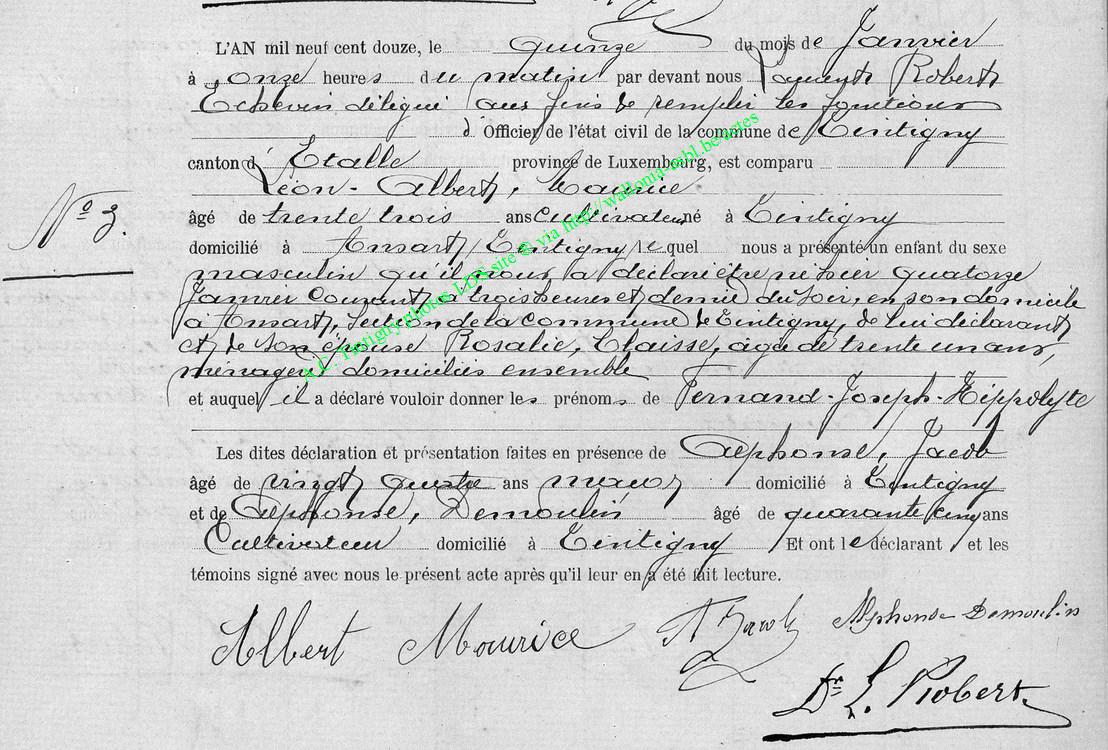 L'AN mil neuf cent douze, le quinze du mois de Janvier
à onze heures du matin par devant nous Laurent Robert
Echevin délégué aux fins de remplir les fonctions
d' Officier de l'état civil de la commune de Tintigny
canton d' Etalle province de Luxembourg, est comparu
Léon-Albert, Maurice
N° 3.
âgé de trente trois ans cultivateur né à Tintigny
domicilié à Ansart, Tintigny lequel nous a présenté un enfant du sexe
masculin qu'il nous a déclaré être né hier quatorze
Janvier courant, à trois heures et demie du soir, en son domicile
à Ansart, section de la commune de Tintigny, de lui déclarant
et de son épouse Rosalie, Claisse, âgée de trente un ans,
ménagère domiciliés ensemble
et auquel il a déclaré vouloir donner les prénoms de Fernand-Joseph-Hippolyte
Les dites déclaration et présentation faites en présence de Alphonse, Jacob
âgé de vingt quatre ans domicilié à Tintigny
et de Alphonse, Demoulin âgé de quarante cinq ans
Cultivateur domicilié à Tintigny Et ont le déclarant et les
témoins signé avec nous le présent acte après qu'il leur en a été fait lecture.
Albert Maurice A Jacob Alphonse Demoulin
Dr L. Robert
A.C. Tintigny photos LDS site © via http://wallonia-asbl.be/actes